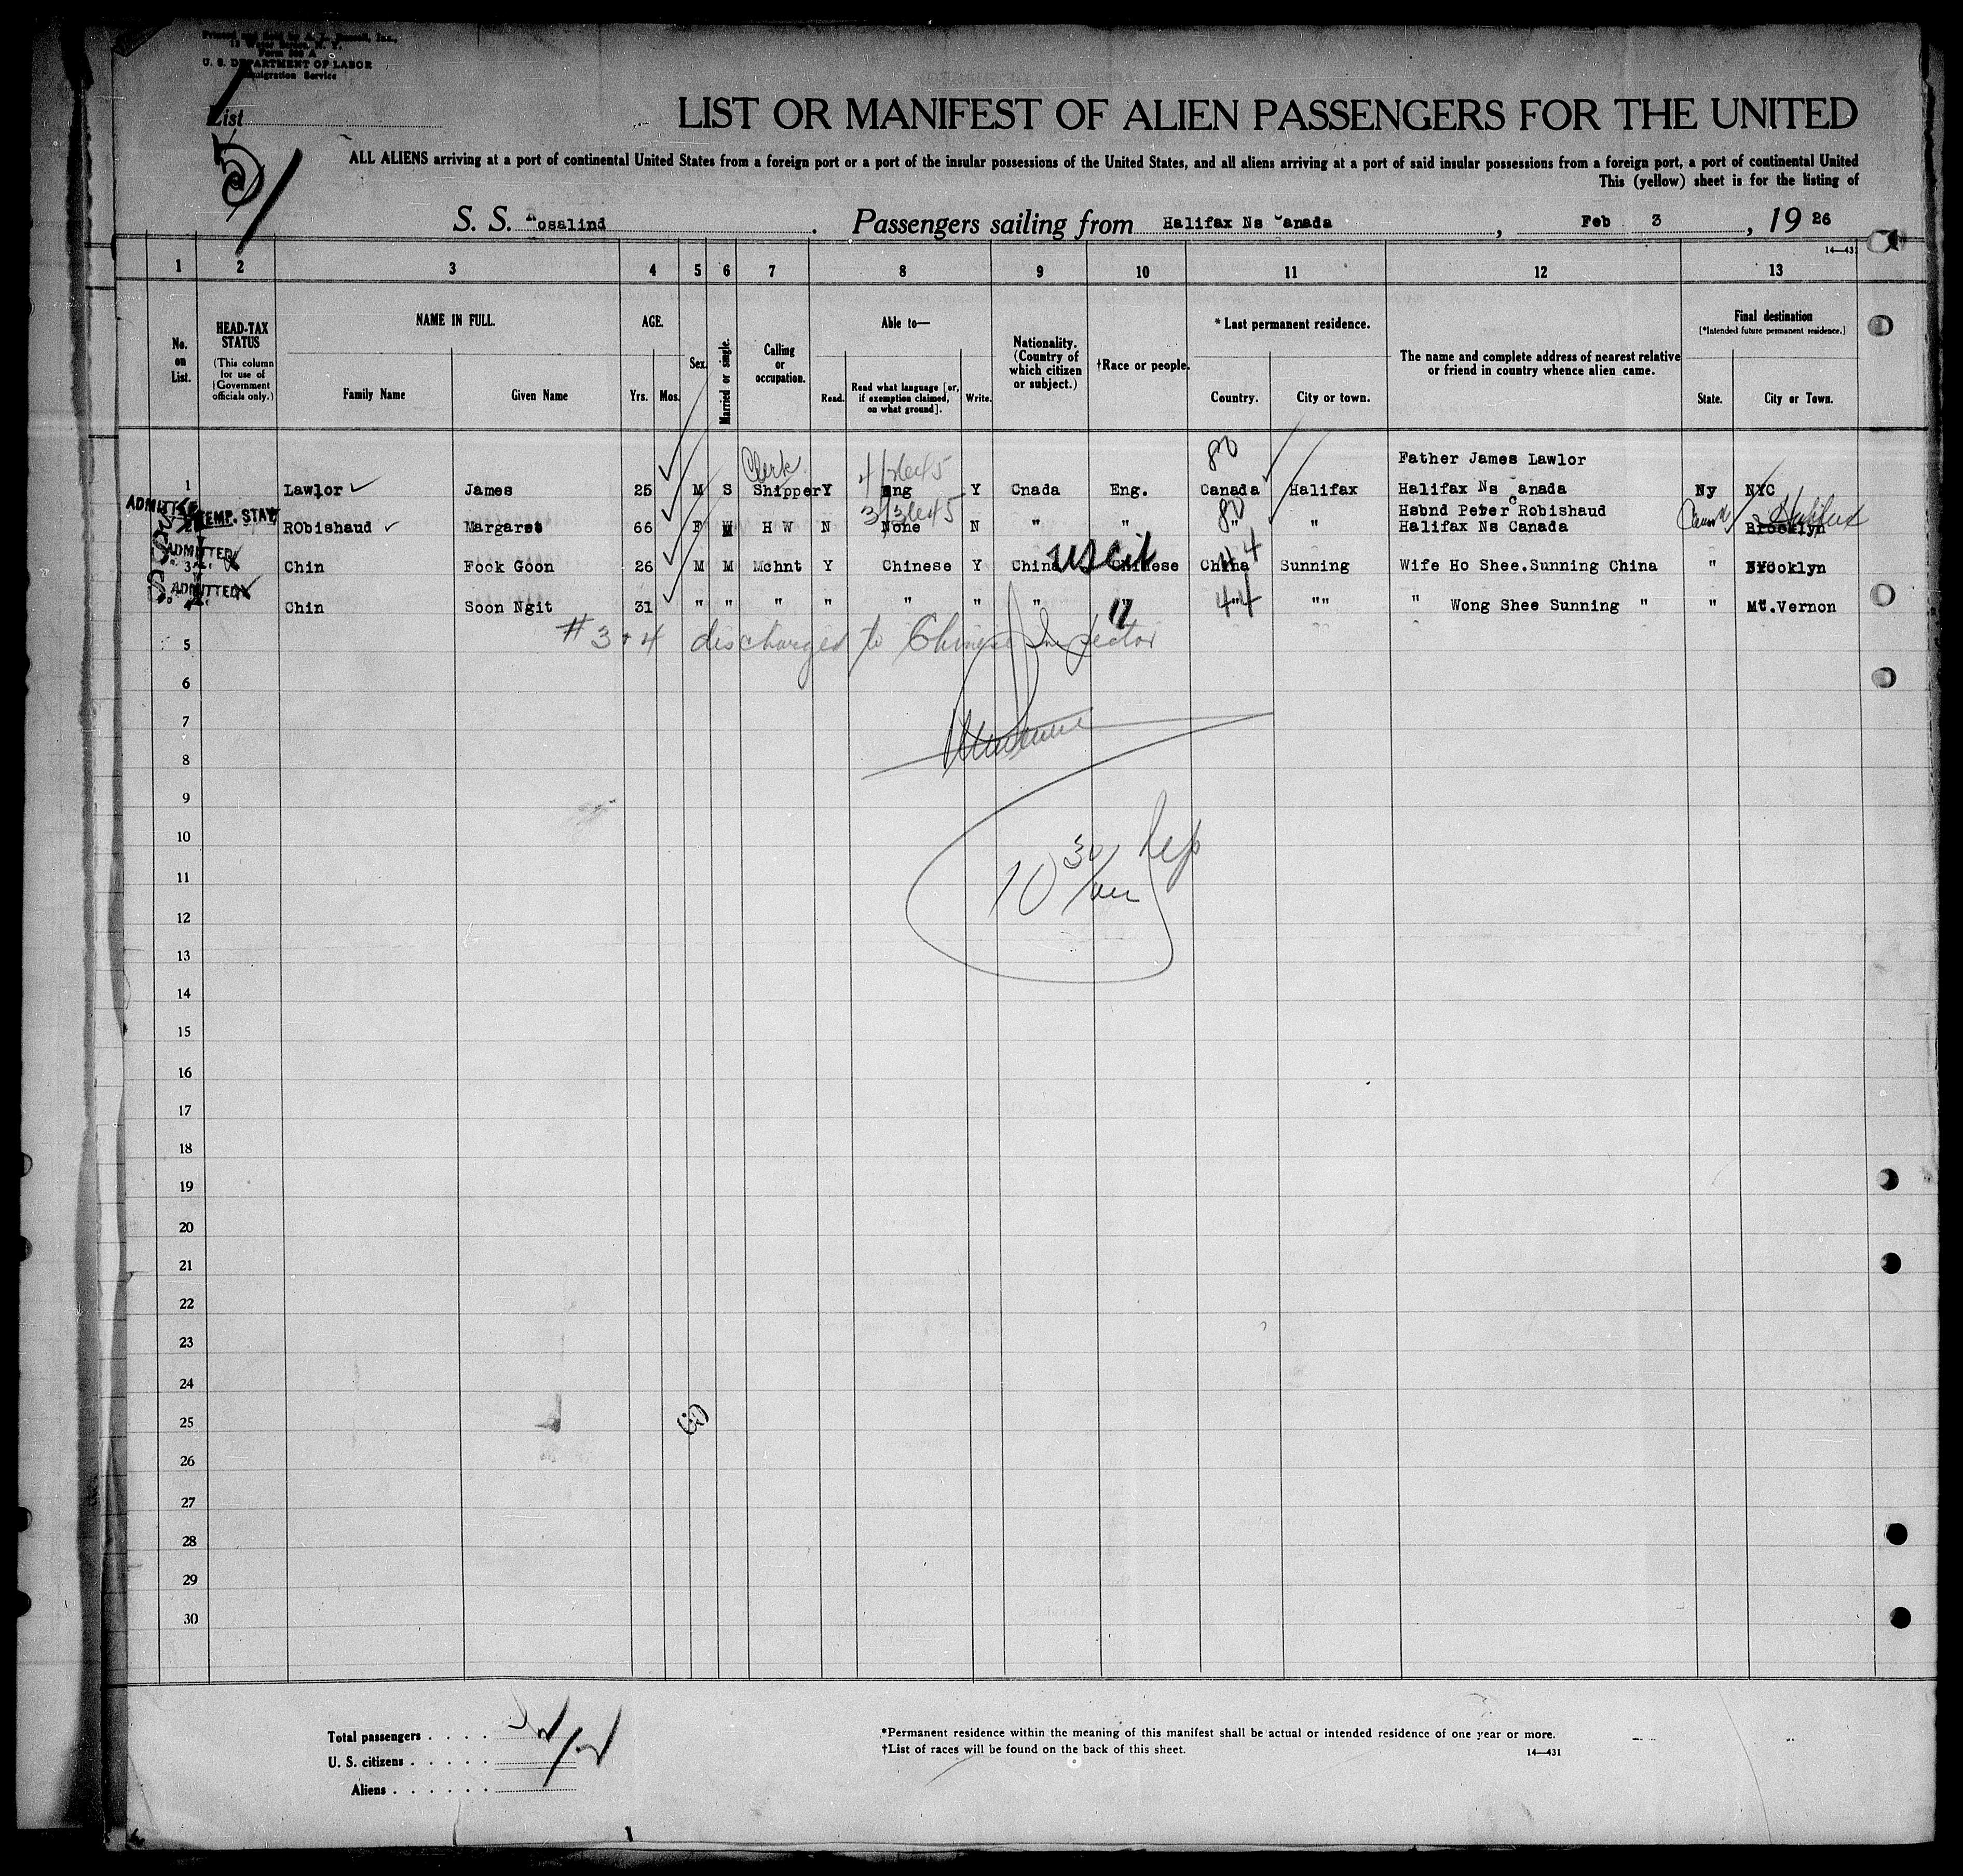 U. S. DEPARTMENT OF LABOR
Immigration Service
List
LIST OR MANIFEST OF ALIEN PASSENGERS FOR THE UNITED
ALL ALIENS arriving at a port of continental United States from a foreign port or a port of the insular possessions of the United States, and all aliens arriving at a port of said insular possessions from a foreign port, a port of continental United
This (yellow) sheet is for the listing of
S. S. Rosalind. Passengers sailing from Halifax Ns Canada, Feb 3, 1926
14—431
1 2 3 4 5 6 7 8 9 10 11 12 13
No. on List.
HEAD-TAX STATUS (This column for use of Government officials only.)
NAME IN FULL. Family Name Given Name
AGE. Yrs. Mos.
Sex.
Married or single.
Calling or occupation.
Able to— Read. Read what language [or, if exemption claimed, on what ground]. Write.
Nationality. (Country of which citizen or subject.)
†Race or people.
* Last permanent residence. Country. City or town.
The name and complete address of nearest relative or friend in country whence alien came.
Final destination (*Intended future permanent residence.) State. City or Town.
Clerk 80 Father James Lawlor
1 Lawlor James 25 M S Shipper Y Eng Y Cnada Eng. Canada Halifax Halifax Ns Canada Ny NYC
ADMITTED TEMP. STAY 80 Hsbnd Peter Robishaud Halifax
2 RObishaud Margaret 66 F M H W N None N " " " " Halifax Ns Canada Brooklyn
ADMITTED US cit 44
3 Chin Fook Goon 26 M M Mchnt Y Chinese Y China Chinese China Sunning Wife Ho Shee.Sunning China " Brooklyn
ADMITTED 44
4 Chin Soon Ngit 31 " " " " " " " " " "" " Wong Shee Sunning " " Mt.Vernon
#3+4 discharged to Chinese Inspector
5
6
7
8
9
10
10 30/am
11
12
13
14
15
16
17
18
19
20
21
22
23
24
25
26
27
28
29
30
Total passengers
U. S. citizens
Aliens
*Permanent residence within the meaning of this manifest shall be actual or intended residence of one year or more.
†List of races will be found on the back of this sheet.
14—431